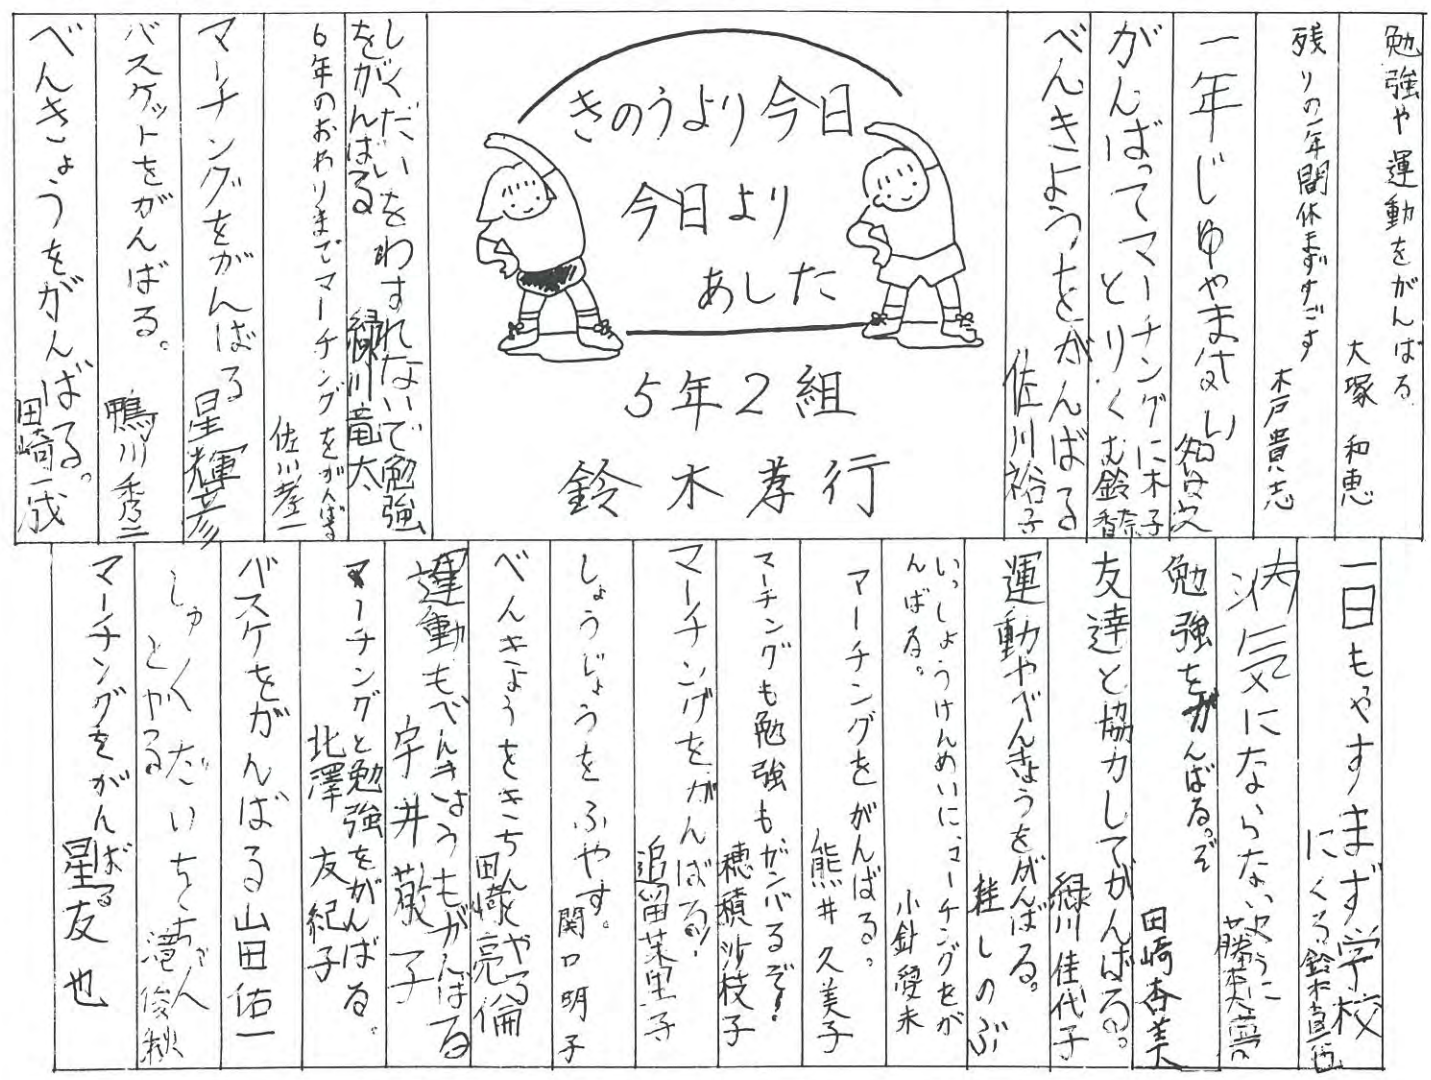 勉強や運動をがんばる
大塚和恵
残りの一年間休まずすごす
木戸貴志
一年じゅうやすまない
がんばってマーチングに
とりくむ
鈴木香奈子
べんきょうをがんばる
佐川裕子
きのうより今日
今日より
あした
5年2組
鈴木孝行
しくだいをわすれないで勉強
をがんばる
緑川竜太
6年のおわりまでマーチングをがんばる
佐川孝一
マーチングをがんばる
星輝彦
バスケットをがんばる。
鴨川秀二
べんきょうをがんばる。
田崎一成
一日もやすまず学校
にくる
病気にならないように
勉強をがんばるぞ
田崎杏美
友達と協力してがんばる。
緑川佳代子
運動やべんきょうをがんばる。
桂しのぶ
いっしょうけんめいに、マーチングをが
んばる。
小針愛未
マーチングをがんばる。
熊井久美子
マーチングも勉強もガンバるぞ!
穂積沙枝子
マーチングをがんばる!
追留茉里子
しょうじょうをふやす。
関口明子
べんきょうをきちんとやる
田崎亮倫
運動もべんきょうもがんばる
宇井敬子
マーチングと勉強をがんばる。
北澤友紀子
バスケをがんばる
山田佑一
しゅくだいをちゃん
とやる
滝俊秋
マーチングをがんばる
星友也